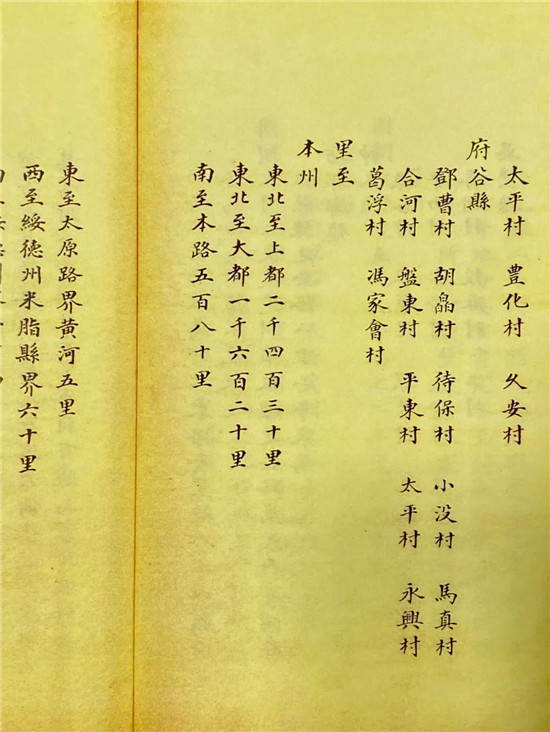 太平村 豊化村 久安村
府谷縣
鄧曹村 胡皛村 待保村 小没村 馬真村
合河村 盤東村 平東村 太平村 永興村
葛浮村 馮家會村
里至
本州
東北至上都二千四百三十里
東北至大都一千六百二十里
南至本路五百八十里
東至太原路界黄河五里
西至綏德州米脂縣界六十里